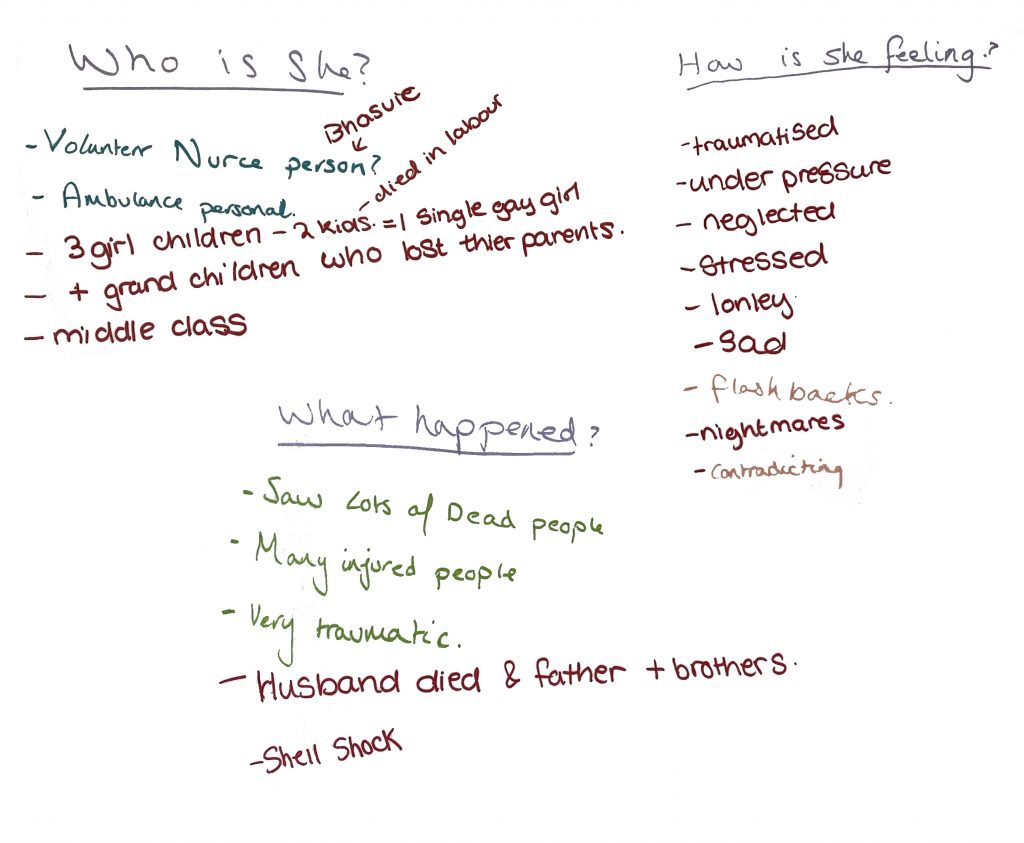 Who is She?
Bhasure
- Volunterr Nurce person?
- Ambulance personal.
- died in labour
- 3 girl children - 2 kids. = 1 single gay girl
- + grand children who lost thier parents.
- middle class
How is she feeling?
- traumatised
- under pressure
- neglected
- stressed
- lonley
- Sad
- flash backs.
- nightmares
- contradicting
What happened?
- Saw Lots of Dead people
- Many injured people
- Very traumatic.
- Husband died & father + brothers.
- Shell Shock